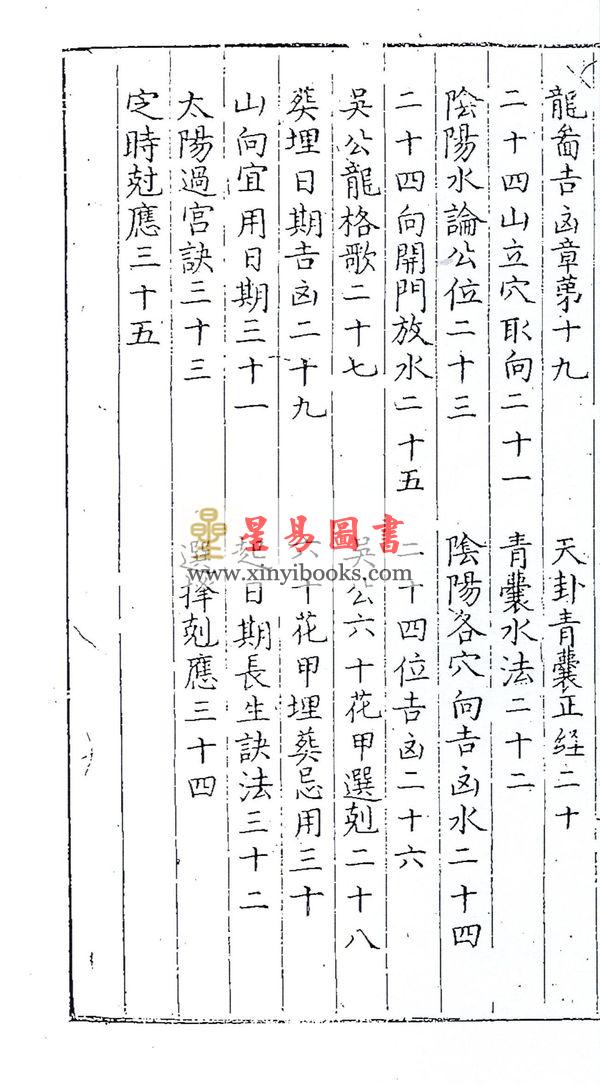 龍啚吉凶章苐十九 天卦青囊正経二十
二十四山立穴取向二十一 青囊水法二十二
陰陽水論公位二十三 陰陽各穴向吉凶水二十四
二十四向開門放水二十五 二十四位吉凶二十六
吳公龍格歌二十七 吳公六十花甲選尅二十八
葬埋日期吉凶二十九 六十花甲埋葬忌用三十
山向宜用日期三十一 起日期長生訣法三十二
太陽過宮訣三十三 選擇尅應三十四
定時尅應三十五
星易圖書
www.xinyibooks.com